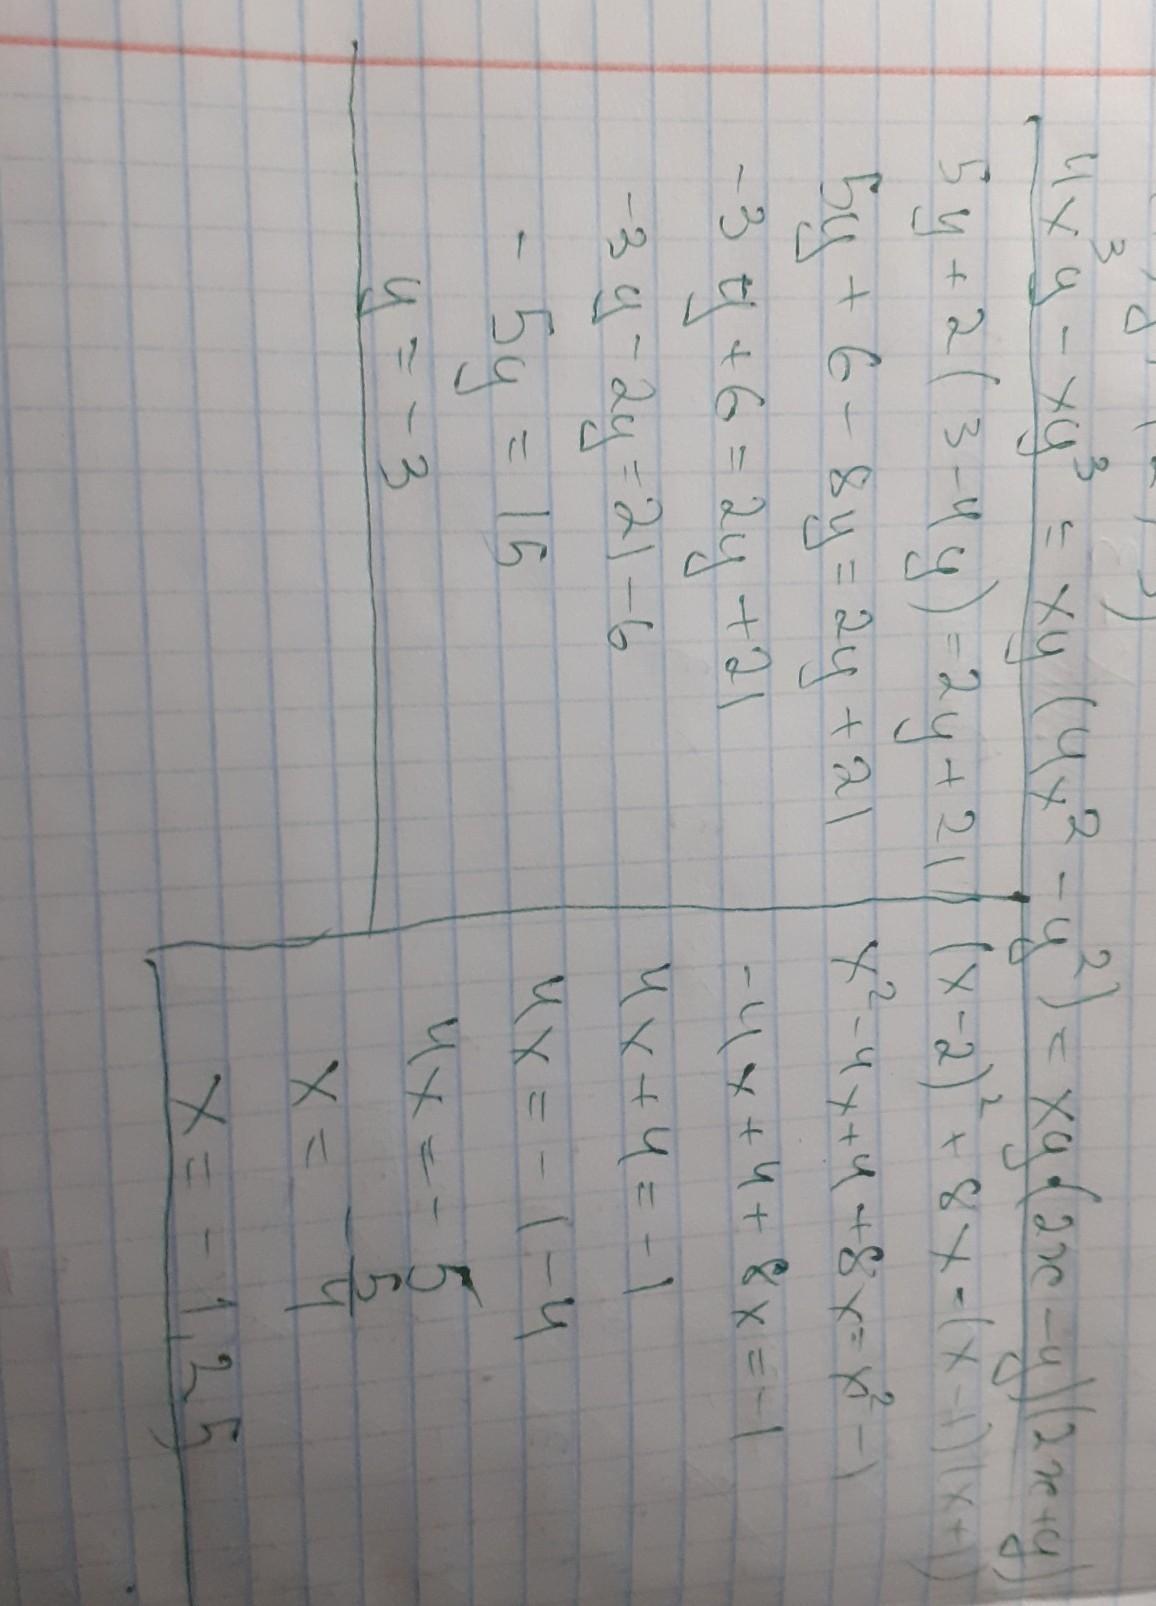 4x³y - xy³ = xy(4x² - y²) = xy·(2x-y)(2x+y)
5y + 2(3-4y) = 2y + 21
5y + 6 - 8y = 2y + 21
-3y + 6 = 2y + 21
-3y - 2y = 21 - 6
- 5y = 15
y = - 3
(x-2)² + 8x = (x-1)(x+1)
x² - 4x + 4 + 8x = x² - 1
-4x + 4 + 8x = -1
4x + 4 = -1
4x = -1 - 4
4x = - 5
x = - 5/4
x = - 1,25